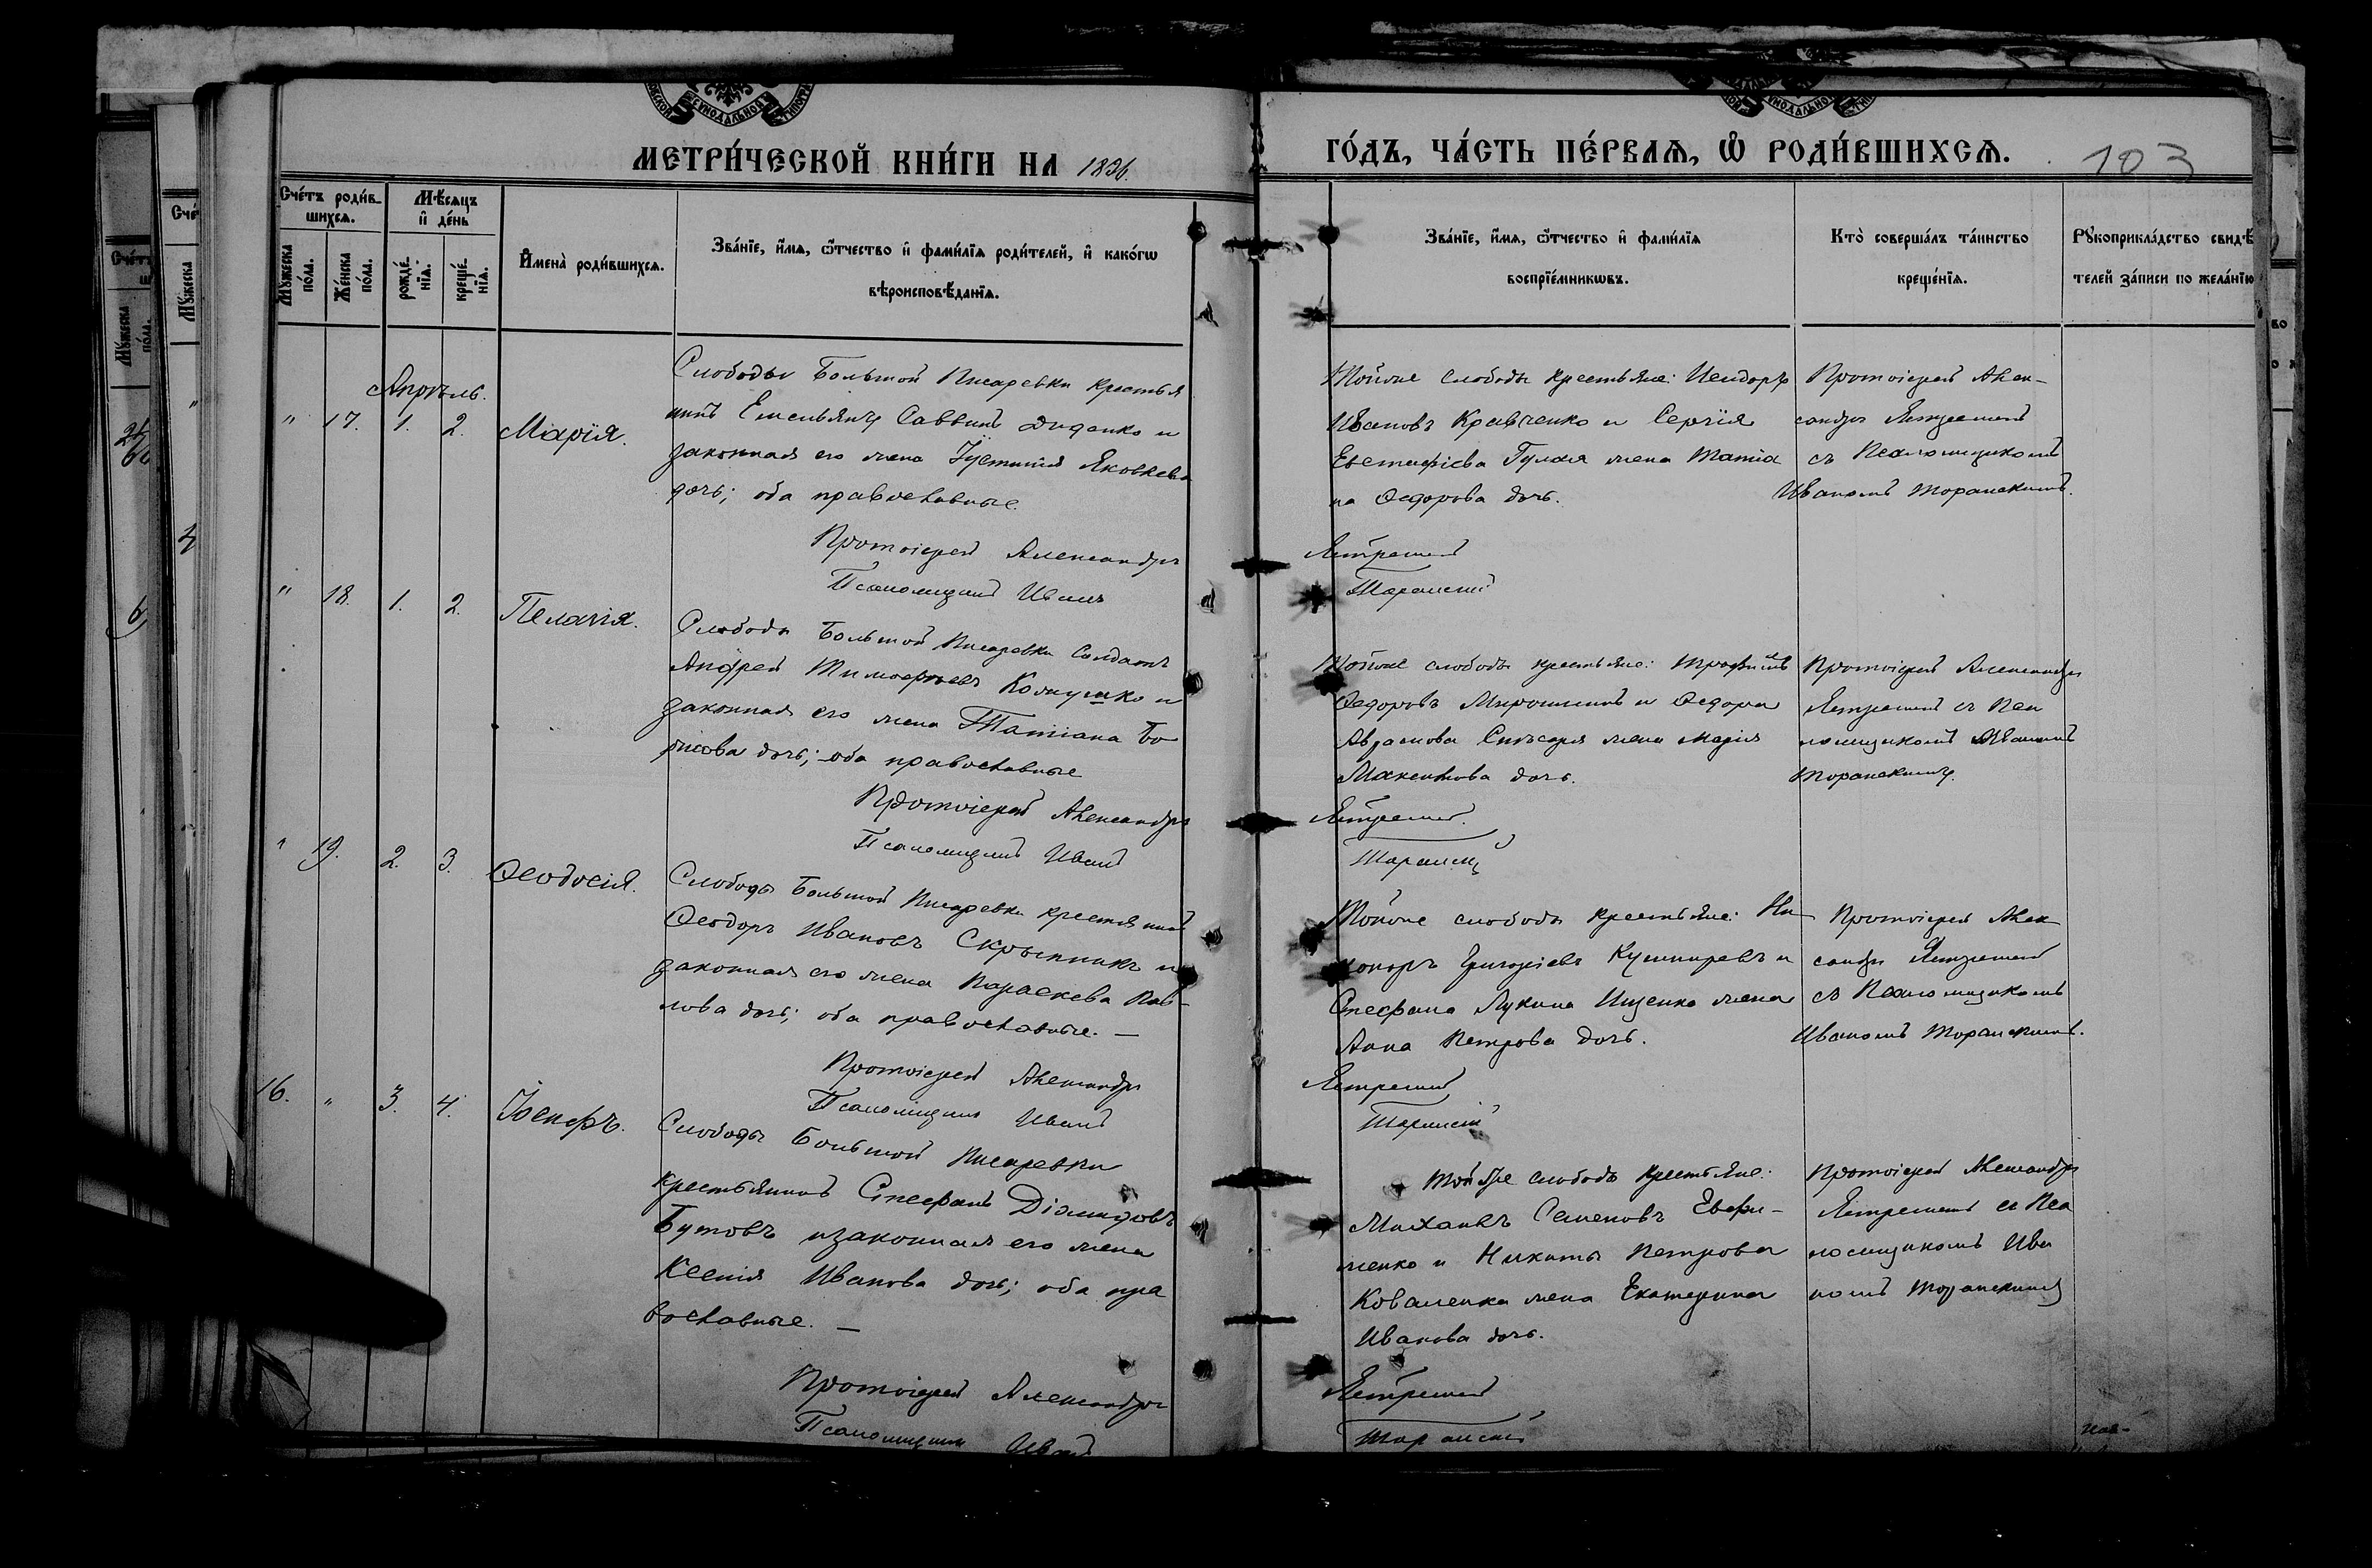 МЕТРИ́ЧЕСКОЙ КНИ́ГИ НА 1896.
ГО́ДЪ, ЧА́СТЬ ПЕ́РВАѦ, Ѿ РОДИ́ВШИХСѦ.
103
Счётъ роди́в-
шихсѧ.
Мѣ́сѧцъ
и҆ де́нь
Мꙋ́жеска по́ла.
Же́нска по́ла.
рожде́нїѧ.
креще́нїѧ.
И҆мена̀ роди́вшихсѧ.
Зва́нїе, и҆́мѧ, ѻ҆́тчество и҆ фами́лїѧ роди́телей, и҆ како́гѡ
вѣроисповѣ́данїѧ.
Зва́нїе, и҆́мѧ, ѻ҆́тчество и҆ фами́лїѧ
воспрїе́мникѡвъ.
Кто̀ соверша́лъ та́инство
креще́нїѧ.
Рꙋкоприкла́дство свидѣ́
телей за́писи по жела́нїю
Апрѣль.
" 17. 1. 2. Марія.
Слободы Большой Писаревки крестья
нинъ Емельянъ Саввинъ Диденко и
законная его жена Іустинія Яковлева
дочь; оба православные
Протоіерей Александръ
Псаломщикъ Иванъ
Тойже слободы крестьяне: Исидоръ
Ивановъ Кравченко и Сергія
Евстафіева Гулая жена Татіа
на Ѳедорова дочь.
Протоіерей Алек-
сандръ Ястремскій
съ Псаломщикомъ
Иваномъ Торанскимъ.
Ястремскій
Торанскій
" 18. 1. 2. Пелагія.
Слободы Большой Писаревки Солдатъ
Андрей Тимофѣевъ и
законная его жена Татіана Бо
рисова дочь; оба православные
Протоіерей Александръ
Псаломщикъ Иванъ
Тойже слободы крестьяне: Трофимъ
Ѳедоровъ Мирошникъ и Ѳедора
Аврамова Слѣсаря жена Марія
дочь.
Протоіерей Александръ
Ястремскій съ Пса
ломщикомъ Иваномъ
Торанскимъ.
Ястремскій.
Торанскій
" 19. 2. 3. Ѳеодосія.
Слободы Большой Писаревки крестьянинъ
Ѳеодоръ Ивановъ Скрынникъ и
законная его жена Параскева Пав-
лова дочь; оба православные. —
Протоіерей Александръ
Псаломщикъ Иванъ
Тойже слободы крестьяне: Ни-
каноръ Григоріевъ Кушниревъ и
Стефана Лукина Ищенка жена
Анна Петрова дочь.
Протоіерей Алек-
сандръ Ястремскій
съ Псаломщикомъ
Иваномъ Торанскимъ.
Ястремскій
Торанскій
16. " 3. 4. Іосифъ.
Слободы Большой Писаревки
крестьянинъ Стефанъ Діомидовъ
Бутовъ изаконная его жена
Ксенія Иванова дочь; оба пра
вославные. —
Протоіерей Александръ
Псаломщикъ Иванъ
Тойже слободы крестьяне:
Михаилъ Семеновъ Ефи-
менко и Никиты Петрова
Коваленка жена Екатерина
Иванова дочь.
Протоіерей Александръ
Ястремскій съ Пса
ломщикомъ Ива
номъ Торанскимъ
Ястремскій
Торанскій